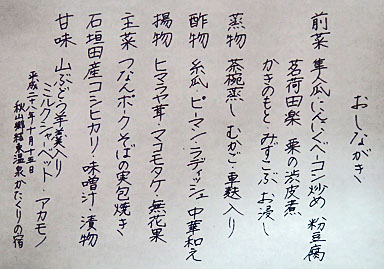 おしながき
前菜 隼人瓜にんにくベーコン炒め 粉豆腐
茗荷田楽 栗の渋皮煮
かきのもと・みずこぶ お浸し
蒸物 茶碗蒸し むかご・車麩入り
酢物 糸瓜 ピーマン・ラディッシュ 中華和え
揚物 ヒマラヤ茸・マコモタケ・無花果
主菜 つなんポークそばの実包焼き
石垣田産コシヒカリ・味噌汁・漬物
甘味 山ぶどう羊羹入り
ミルクシャーベット・アカモノ
平成二十八年十月十五日
秋山郷結東温泉かたくりの宿